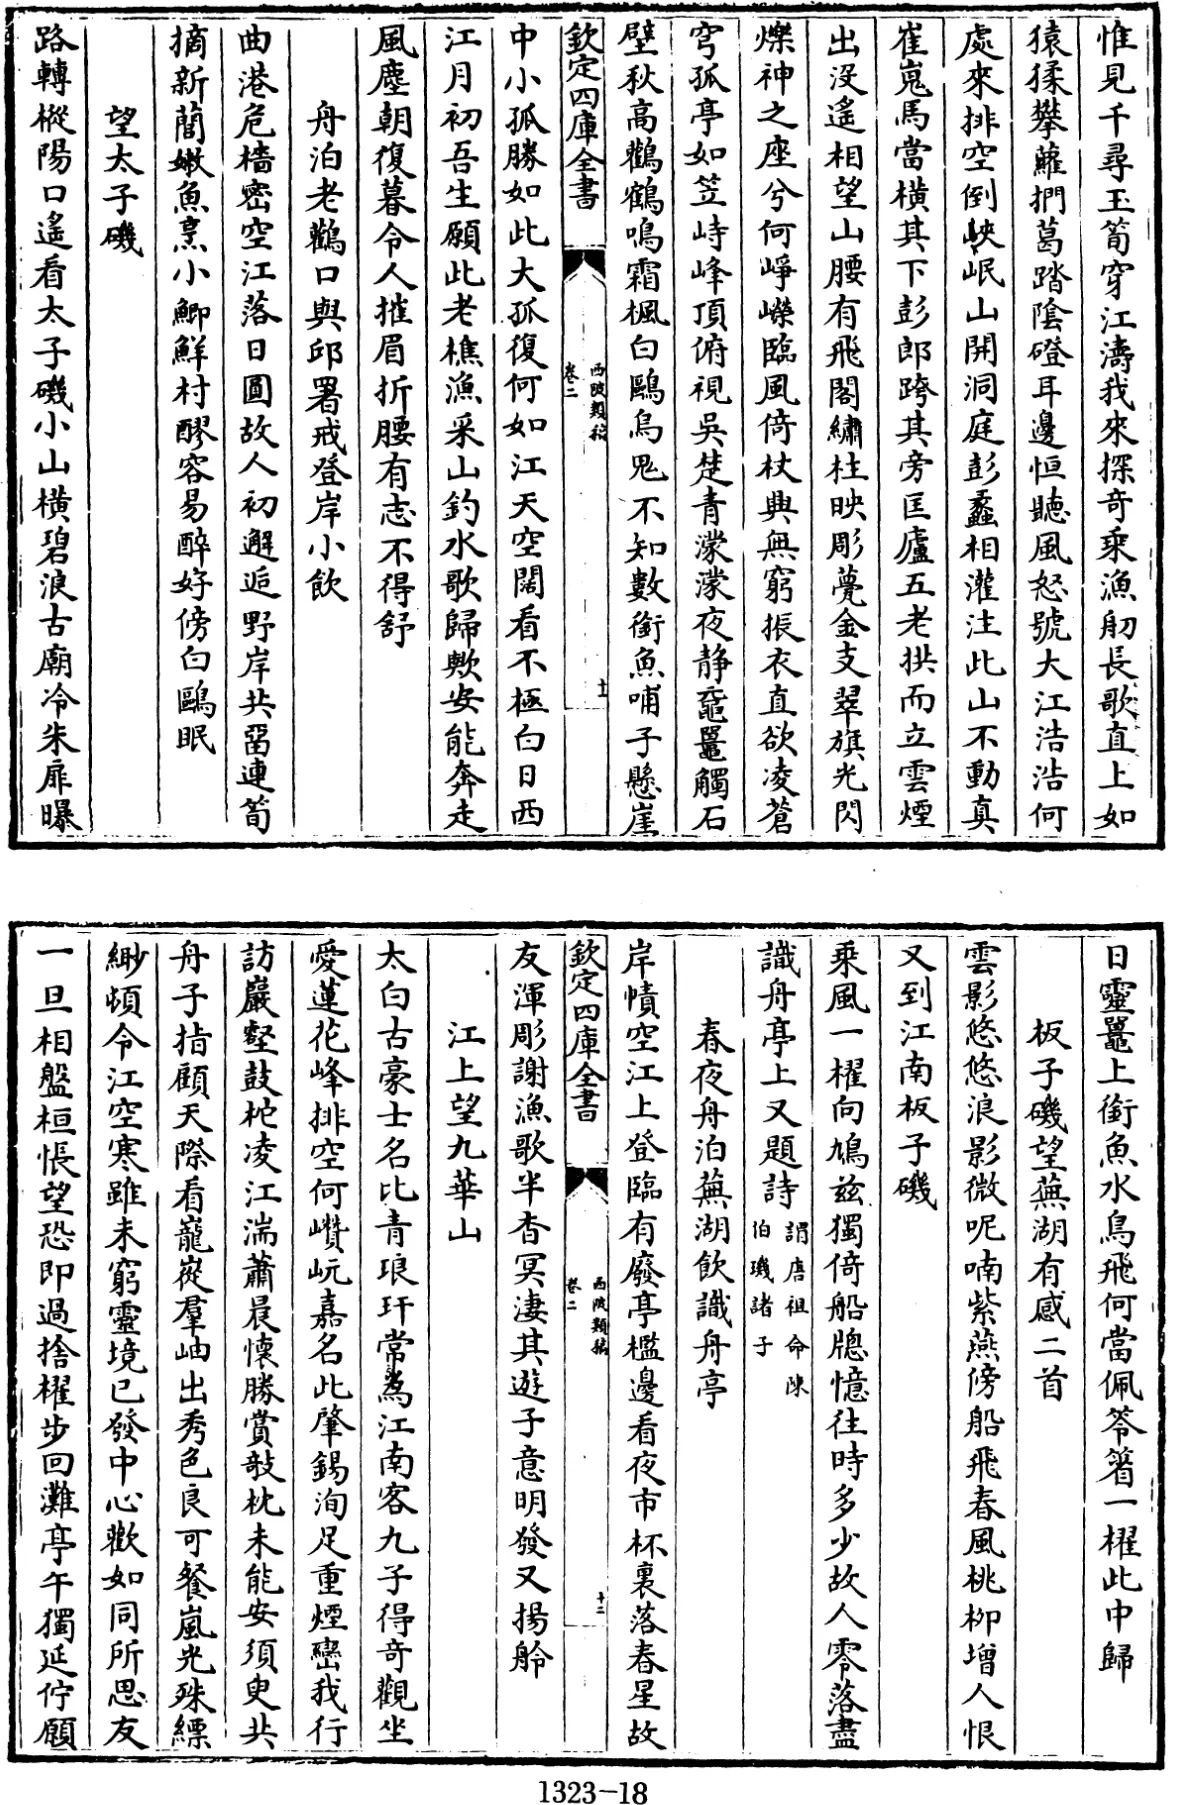 惟見千尋玉筍穿江濤我來探奇乗漁舠長歌直上如
猿猱攀蘿捫葛踏陰磴耳邊恒聽風怒號大江浩浩何
處來排空倒峽岷山開洞庭彭蠡相灌注此山不動真
崔嵬馬當橫其下彭郎跨其旁匡廬五老拱而立雲煙
出没遙相望山腰有飛閣繡柱映彫甍金支翠旗光閃
爍神之座兮何崢嶸臨風倚杖興無窮振衣直欲凌蒼
穹孤亭如笠峙峰頂俯視吳楚青濛濛夜静黿鼉觸石
壁秋高鸛鶴鳴霜楓白鷗烏鬼不知數銜魚哺子懸崖
欽定四庫全書
西陂類稿
卷二
十一
中小孤勝如此大孤復何如江天空闊看不極白日西
江月初吾生願此老樵漁采山釣水歌歸歟安能奔走
風塵朝復暮令人摧眉折腰有志不得舒
舟泊老鸛口與邱署戒登岸小飲
曲港危檣密空江落日圓故人初邂逅野岸共留連筍
摘新蕳嫩魚烹小鯽鮮村醪容易醉好傍白鷗眠
望太子磯
路轉樅陽口遙看太子磯小山橫碧浪古廟冷朱扉曝
日靈鼉上銜魚水鳥飛何當佩笭箵一櫂此中歸
板子磯望蕪湖有感二首
雲影悠悠浪影微呢喃紫燕傍船飛春風桃柳增人恨
又到江南板子磯
乗風一櫂向鳩兹獨倚船牕憶往時多少故人零落盡
識舟亭上又題詩謂唐祖命陳伯璣諸子
春夜舟泊蕪湖飲識舟亭
岸幘空江上登臨有廢亭檻邊看夜市杯裏落春星故
欽定四庫全書
西陂類稿
卷二
十二
友渾彫謝漁歌半杳冥淒其遊子意明發又揚舲
江上望九華山
太白古豪士名比青琅玕常為江南客九子得奇觀坐
愛蓮花峰排空何巑岏嘉名此肇錫洵足重煙巒我行
訪巖壑鼓柁凌江湍蕭晨懷勝賞敧枕未能安須臾共
舟子指顧天際看巃嵸羣岫出秀色良可餐嵐光殊縹
緲頓令江空寒雖未窮靈境已發中心歡如同所思友
一旦相盤桓悵望恐即過捨櫂步回灘亭午獨延佇願
1323-18